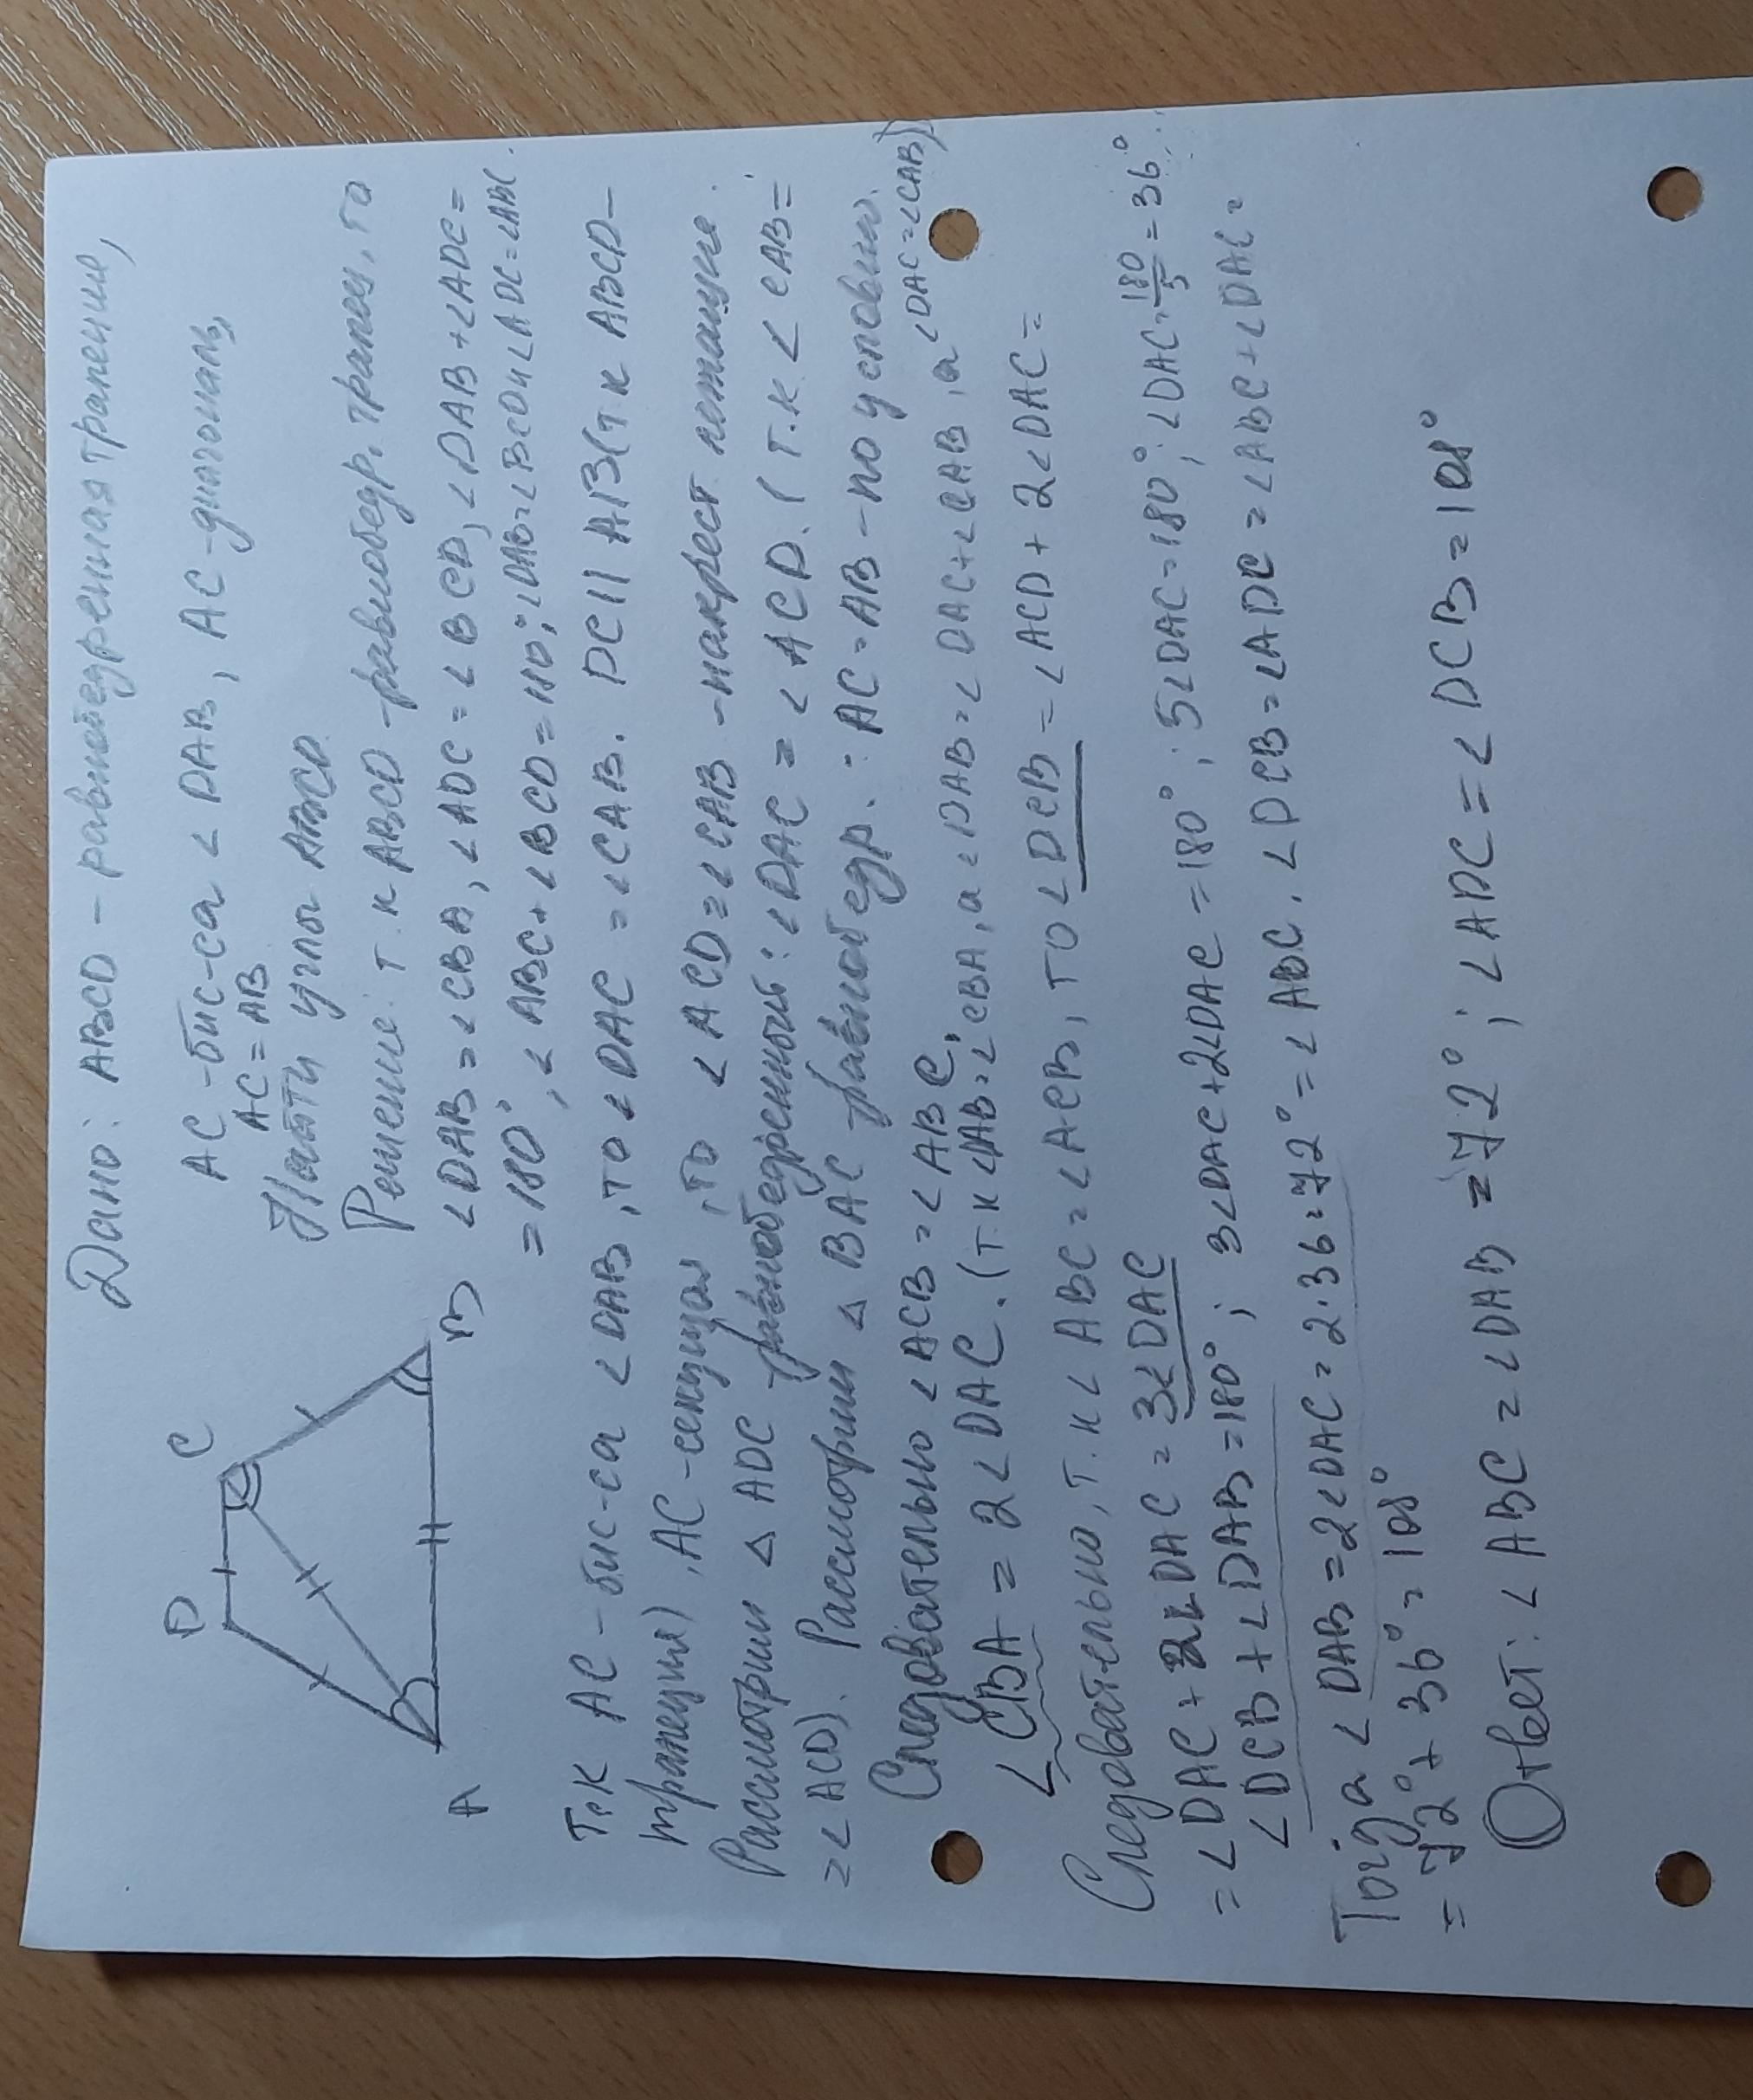 Дано: ABCD - равнобедренная трапеция,
AC - бис-са ∠DAB, AC - диагональ,
AC = AB
Найти углы ABCD
Решение: т.к ABCD - равнобедр. трапец, то
∠DAB = ∠CBA, ∠ADC = ∠BCD, ∠DAB + ∠ADC =
= 180°, ∠ABC + ∠BCD = 180°; ∠DAB = ∠BCD и ∠ADC = ∠ABC.
D C
A B
Т.к AC - бис-са ∠DAB, то ∠DAC = ∠CAB. DC || AB (т к ABCD -
трапеция), AC - секущая, то ∠ACD = ∠CAB - накрест лежащие.
Рассмотрим △ ADC равнобедренный: ∠DAC = ∠ACD. (т.к. ∠CAB =
= ∠ACD). Рассмотрим △ BAC равнобедр.: AC = AB - по условию.
Следовательно ∠ACB = ∠ABC,
∠CBA = 2∠DAC. (т.к ∠DAB = ∠CBA, а ∠DAB = ∠DAC + ∠CAB, а ∠DAC = ∠CAB)
Следовательно, т.к ∠ABC = ∠ACB, то ∠DCB = ∠ACD + 2∠DAC =
= ∠DAC + 2∠DAC = 3∠DAC
∠DCB + ∠DAB = 180°; 3∠DAC + 2∠DAC = 180°; 5∠DAC = 180°; ∠DAC = 180/5 = 36°.
Тогда ∠DAB = 2∠DAC = 2·36 = 72° = ∠ABC. ∠DCB = ∠ADC = ∠ABC + ∠DAC =
= 72° + 36° = 108°
Ответ: ∠ABC = ∠DAB = 72°; ∠ADC = ∠DCB = 108°